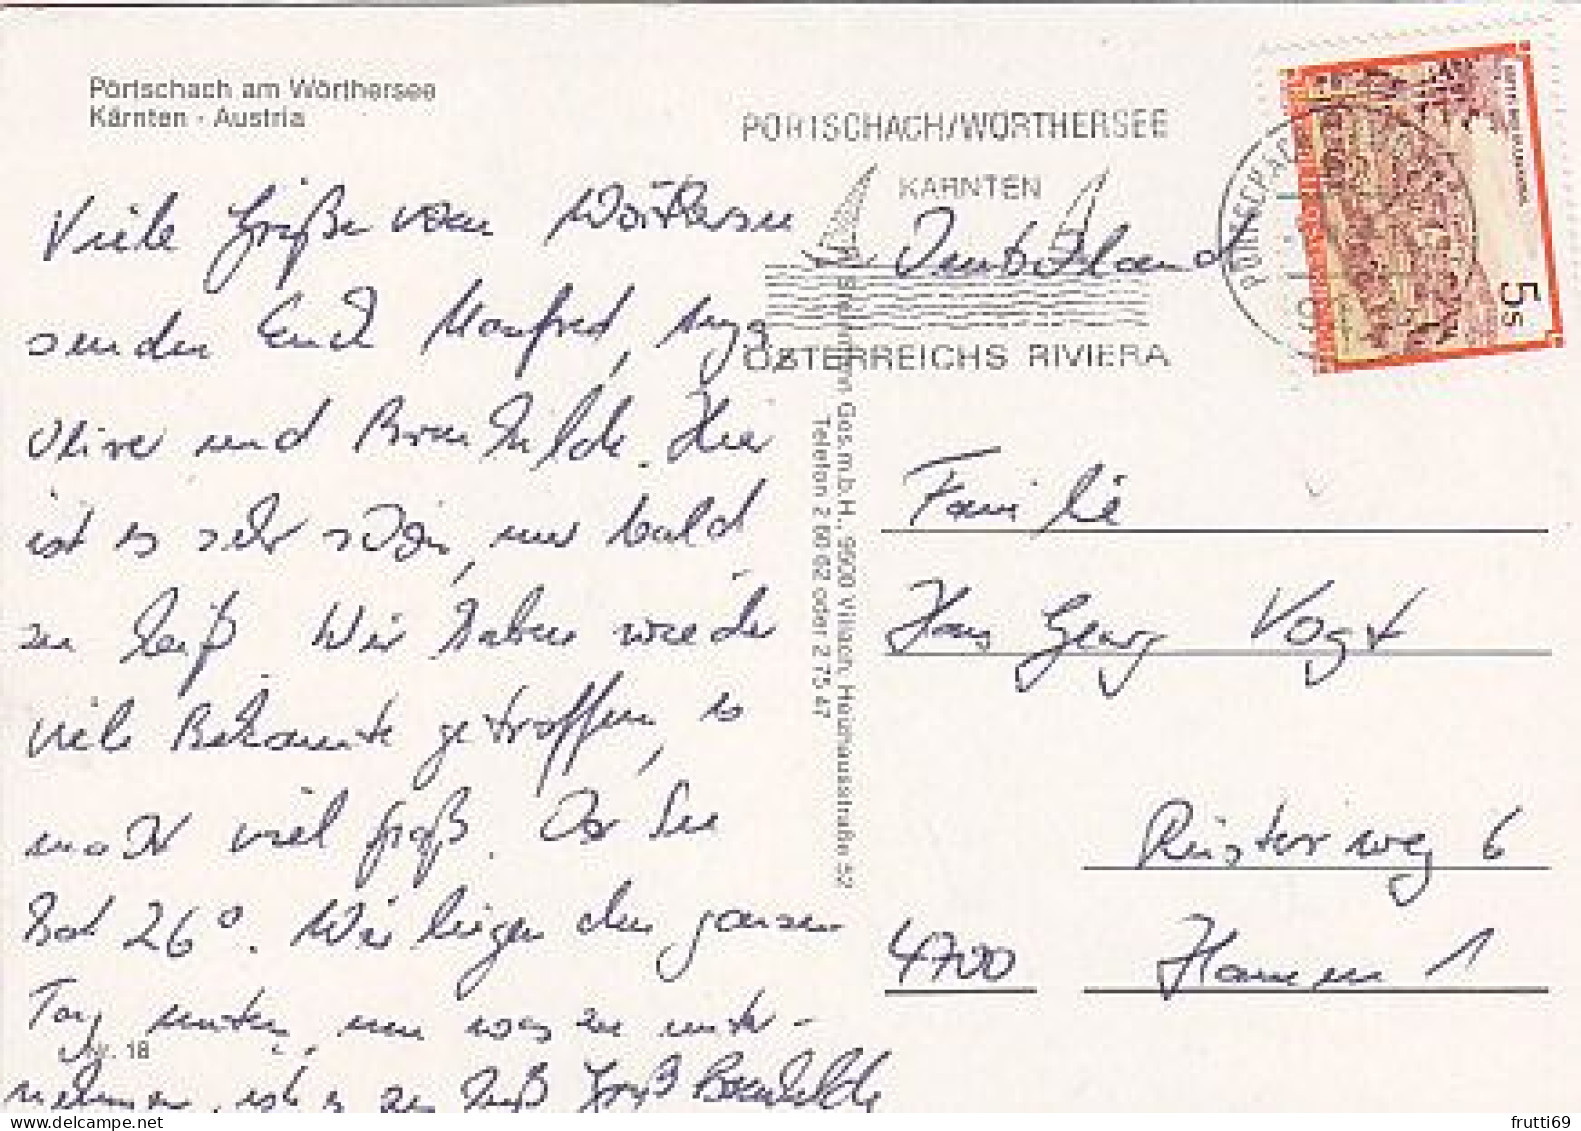 Pörtschach am Wörthersee
Kärnten - Austria
Viele Grüße vom Wörthersee
senden Euch Manfred, Inga,
Oliver und Brunhilde. Hier
ist es sehr schön, nur bald
zu heiß. Wir haben wieder
viele Bekannte getroffen, es
macht viel Spaß. Der See
hat 26°. Wir liegen den ganzen
Tag unten, um was zu unter-
nehmen, ist es zu heiß Gruß Brunhilde
Nr. 18
PÖRTSCHACH/WÖRTHERSEE
KÄRNTEN
ÖSTERREICHS RIVIERA
PÖRTSCHACH
5s
Ges.m.b.H., 9500 Villach, Heizhausstraße 52
Telefon 2 60 62 oder 2 75 47
Deutschland
Familie
Hans Georg Vogt
Rüsterweg 6
4700 Hamm 1
frutti69